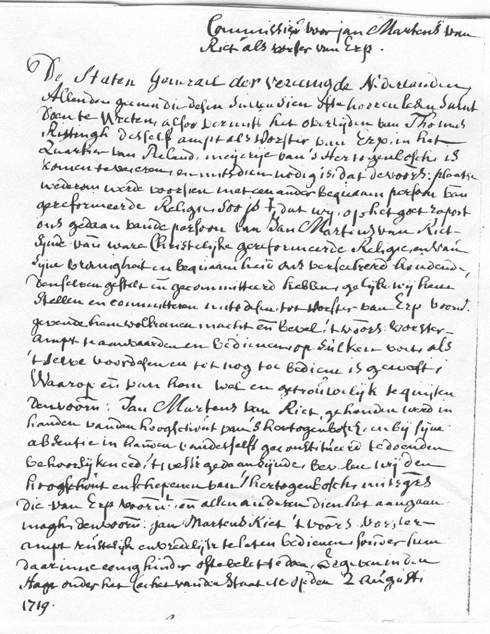 Commissie voor Jan Martens van
Riet als vorster van Erp.
De Staten Generael der vereenigde Nederlanden,
Allen den geenen die desen sullen sien ofte hooren lesen Saluit
Doen te Weten, alsoo vermits het overlijden van Thomas
desself ampt als Vorster van Erp, in het
Quartier van Peland, meijerije van 's Hertogenbosch is
komen te vaceren, en mitsdien nodig is, dat de voors: plaatse
wederom werde voorsien met een ander bequaam persoon van
gereformeerde Religie, Soo ist, dat wij, op het goet raport
ons gedaan vande persoon van Jan Martens van Riet
sijnde van ware Christelijke gereformeerde Religie, en van
sijne vromigheit en bequaamheit ons verseekert houdende,
denselven gestelt en gecommitteerd hebben, gelijk wij hem
stellen en committeren mits desen tot vorster van Erp voorn:
gevende hem volkomen macht en Bevel 't voors: vorster-
ampt te aanvaarden en bedienen op sulken voet als
't selve voor desen en tot nog toe bedient is geweest
Waarop en van hem wel en getrouwelijk te quijten
den voorn: Jan Martens van Riet, gehouden werd in
handen vanden hoogschout van 's hertogenbosch, en bij sijne
absentie in handen van desselfs geconstitueerde te doen den
behoorlijken eed, 't welk gedaan sijnde, bevelen wij den
hoogschout en schepenen van 's hertogenbosch mitsgrs
die van Erp voorn: en allen anderen dien het aengaan
magh den voorn: Jan Martens Riet 't voors: vorster-
ampt rustelijk en vredelijk te laten bedienen, sonder hem
daar inne eenigh hinder ofte belet te doen, Gegeven in den
Hage onder het Cachet vanden Staat de op den 2 augusti
1719.